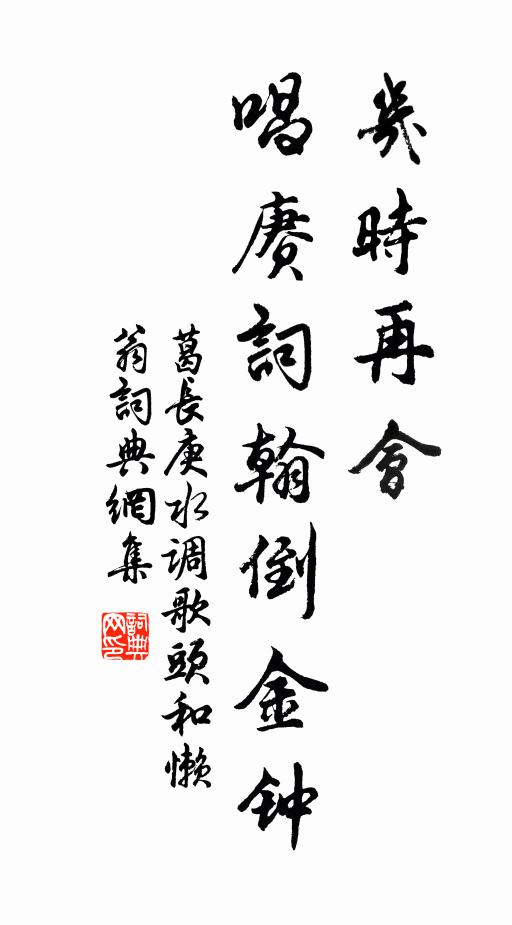 幾時再會
唱賡詞翰倒金钟
葛長庚水调歌頭和懒
翁詞典網集
詞典网印